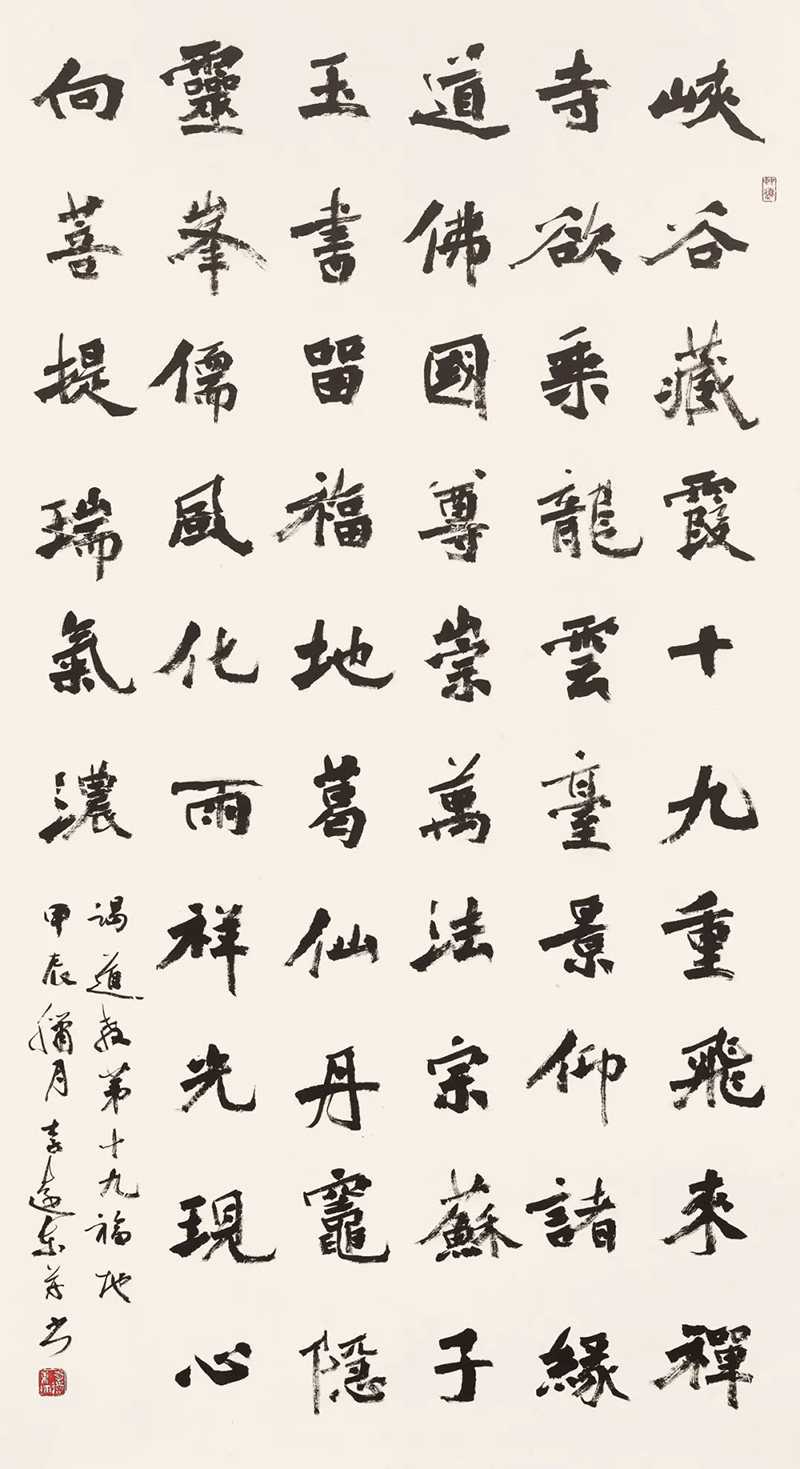 峽谷藏霞十九重飛來禪
寺欲乘龍雲臺景仰諸緣
道佛國尊崇萬法宗蘇子
玉書留福地葛仙丹竈隱
靈峯儒風化雨祥光現心
向菩提瑞氣濃
謁道教第十九福地
甲辰臘月李遠東并书